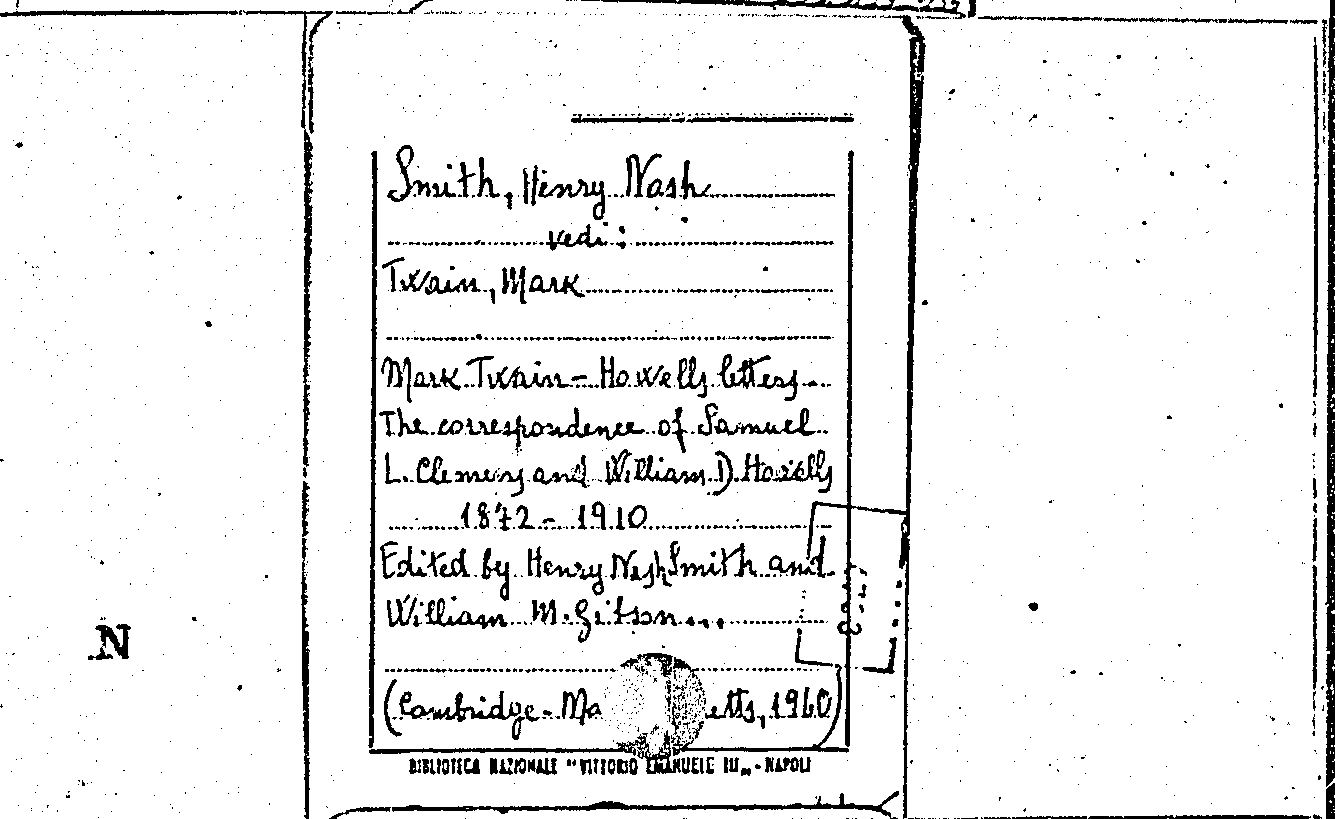 Smith, Henry Nash
vedi:
Twain, Mark
Mark Twain - Howells letters.
The correspondence of Samuel
L. Clemens and William D. Howells
1872 - 1910
Edited by Henry Nash Smith and
William M. Gibson...
(Cambridge - Ma etts, 1960)
BIBLIOTECA NAZIONALE "VITTORIO EMANUELE III„ - NAPOLI
N